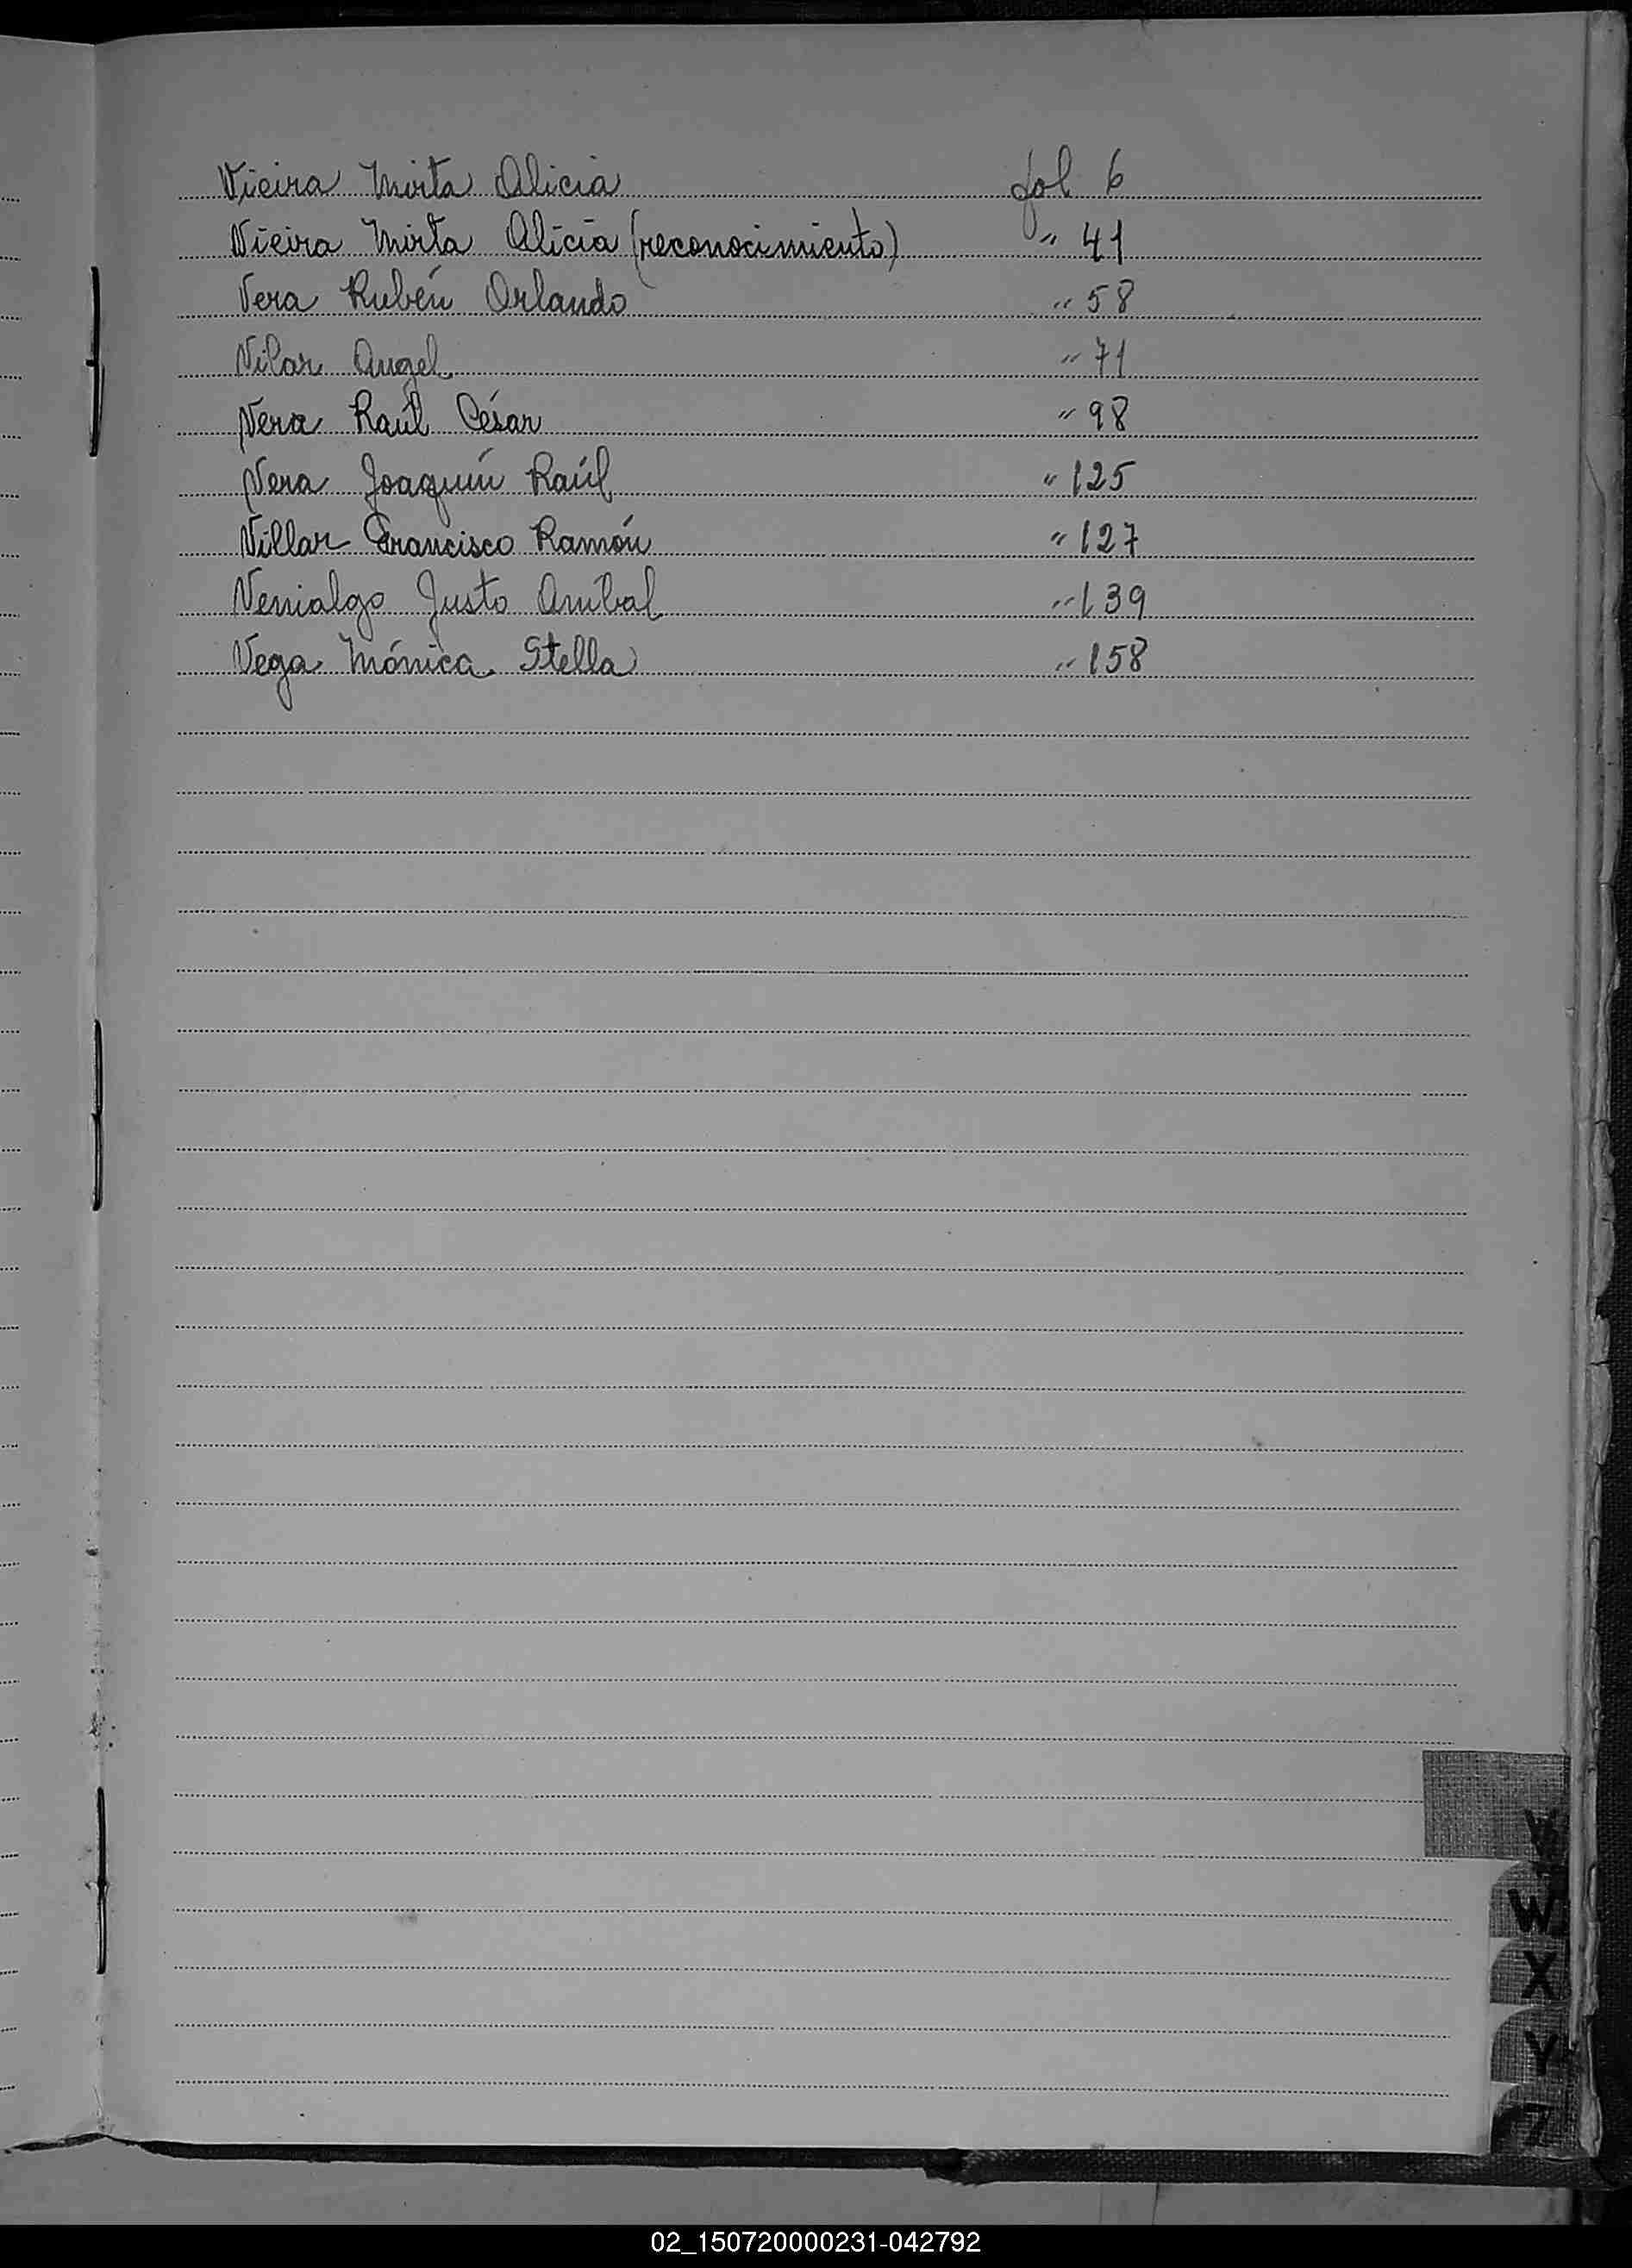 Vieira Mirta Alicia fol 6
Vieira Mirta Alicia (reconocimiento) " 41
Vera Rubén Orlando " 58
Vilar Angel " 71
Vera Raúl César " 98
Vera Joaquín Raúl " 125
Villar Francisco Ramón " 127
Venialgo Justo Anibal " 139
Vega Mónica Stella " 158
V
W
X
Y
Z
02_150720000231-042792